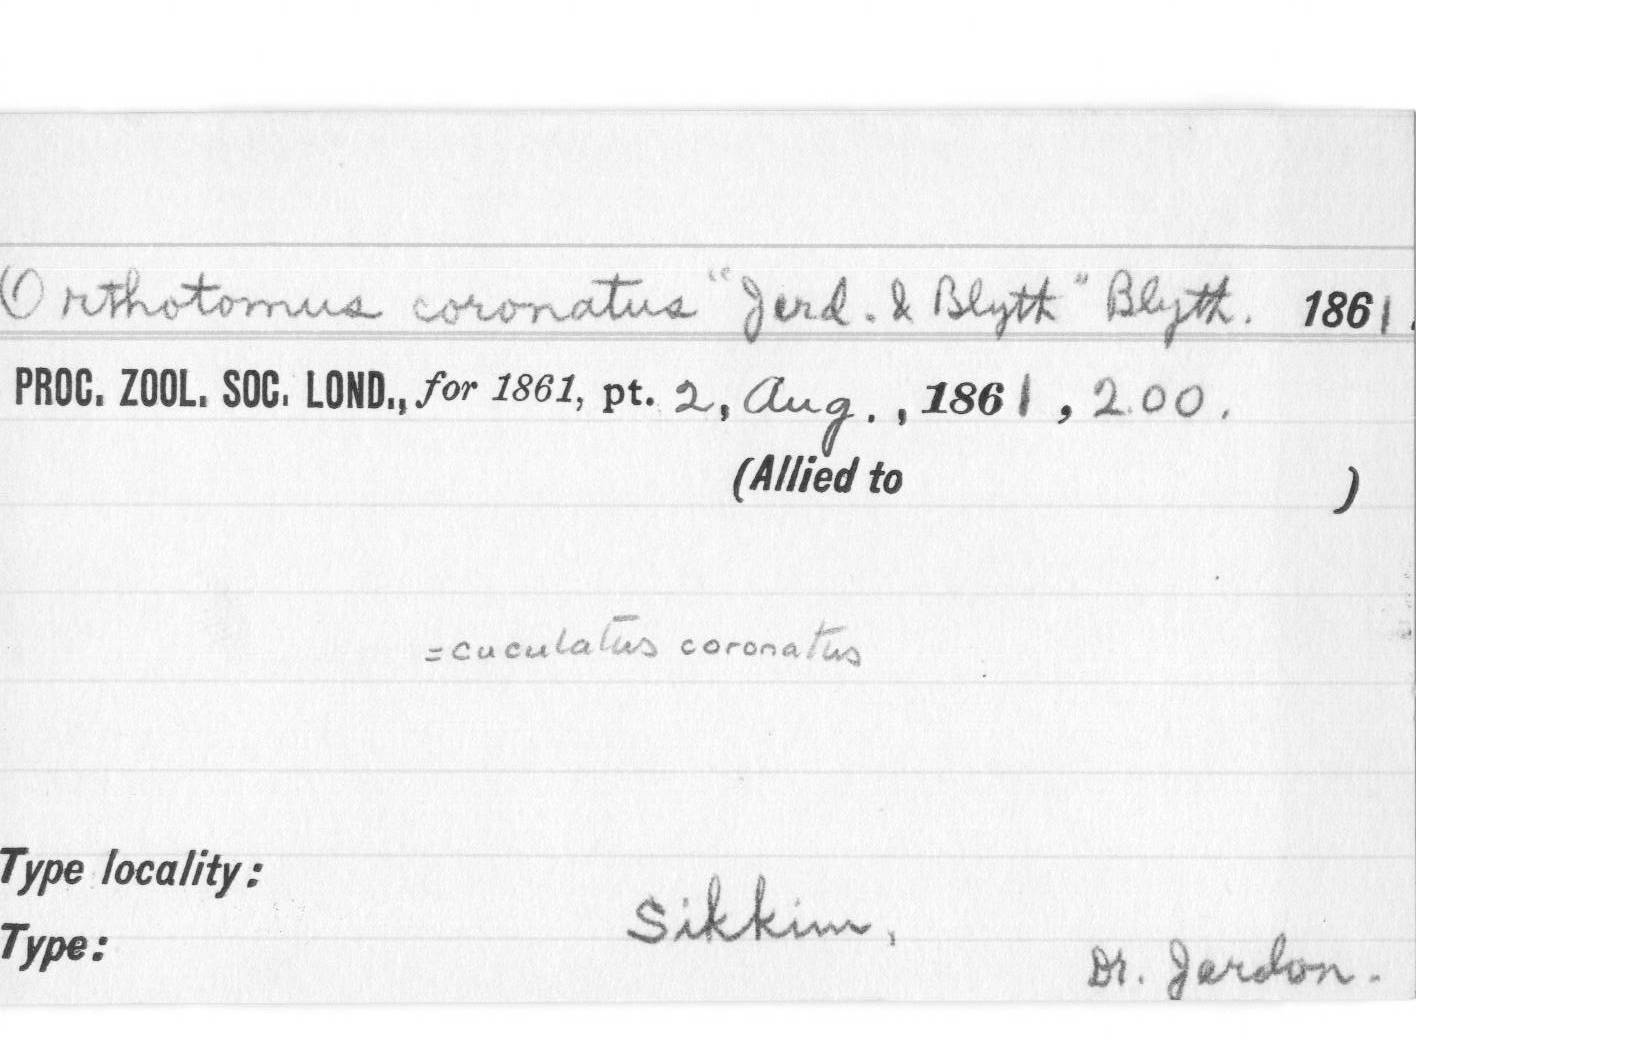 Orthotomus coronatus "Jerd. & Blyth" Blyth. 1861.
PROC. ZOOL. SOC. LOND., for 1861, pt. 2, Aug., 1861, 200.
(Allied to )
=cuculatus coronatus
Type locality:
Sikkim,
Type:
Dr. Jerdon.